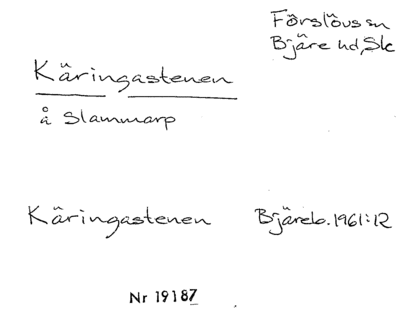 Förslöv sn
Bjäre hd, Sk
Käringastenen
å Slammarp
Käringastenen Bjäreb. 1961:12
Nr 19187